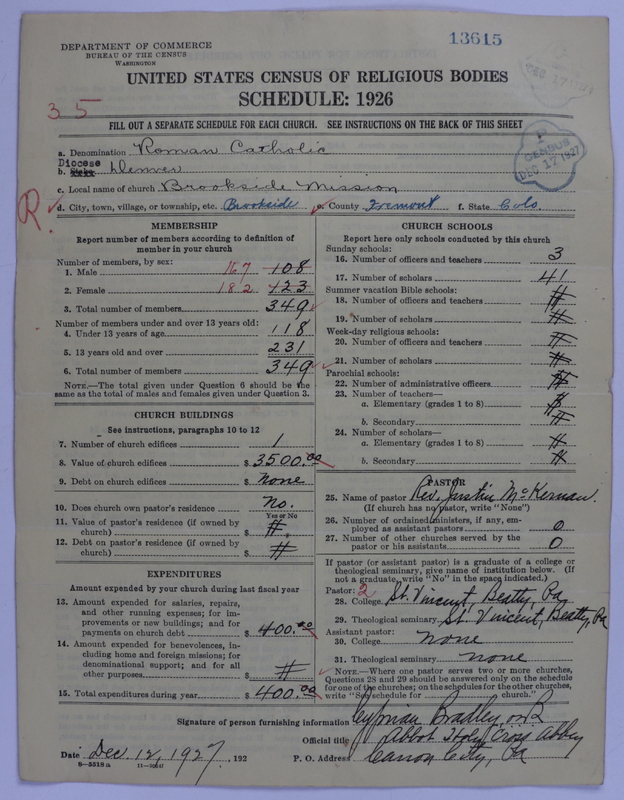 DEPARTMENT OF COMMERCE
BUREAU OF THE CENSUS
WASHINGTON
13615
DEC 17 1927
UNITED STATES CENSUS OF RELIGIOUS BODIES
SCHEDULE: 1926
35
FILL OUT A SEPARATE SCHEDULE FOR EACH CHURCH. SEE INSTRUCTIONS ON THE BACK OF THIS SHEET
P
CENSUS
DEC 17 1927
a. Denomination Roman Catholic
Diocese
b. Denver
c. Local name of church Brookside Mission
R.
d. City, town, village, or township, etc. Brookside e. County Fremont f. State Colo.
MEMBERSHIP
Report number of members according to definition of
member in your church
Number of members, by sex:
1. Male 167 108
2. Female 182 123
3. Total number of members 349
Number of members under and over 13 years old:
4. Under 13 years of age 118
5. 13 years old and over 231
6. Total number of members 349
NOTE.—The total given under Question 6 should be the
same as the total of males and females given under Question 3.
CHURCH BUILDINGS
See instructions, paragraphs 10 to 12
7. Number of church edifices 1
8. Value of church edifices $ 3500.00
9. Debt on church edifices $ none
10. Does church own pastor's residence no.
Yes or No
11. Value of pastor's residence (if owned by
church) $
12. Debt on pastor's residence (if owned by
church) $
EXPENDITURES
Amount expended by your church during last fiscal year
13. Amount expended for salaries, repairs,
and other running expenses; for im-
provements or new buildings; and for
payments on church debt $ 400.00
14. Amount expended for benevolences, in-
cluding home and foreign missions; for
denominational support; and for all
other purposes $
15. Total expenditures during year $ 400.00
CHURCH SCHOOLS
Report here only schools conducted by this church
Sunday schools:
16. Number of officers and teachers 3
17. Number of scholars 41
Summer vacation Bible schools:
18. Number of officers and teachers
19. Number of scholars
Week-day religious schools:
20. Number of officers and teachers
21. Number of scholars
Parochial schools:
22. Number of administrative officers
23. Number of teachers—
a. Elementary (grades 1 to 8)
b. Secondary
24. Number of scholars—
a. Elementary (grades 1 to 8)
b. Secondary
PASTOR
25. Name of pastor Rev. Justin McKernan.
(If church has no pastor, write "None")
26. Number of ordained ministers, if any, em-
ployed as assistant pastors 0
27. Number of other churches served by the
pastor or his assistants 0
If pastor (or assistant pastor) is a graduate of a college or
theological seminary, give name of institution below. (If
not a graduate, write "No" in the space indicated.)
Pastor: 2
28. College St. Vincent, Beatty, Pa
29. Theological seminary St. Vincent, Beatty, Pa
Assistant pastor:
30. College none
31. Theological seminary none
NOTE.—Where one pastor serves two or more churches,
Questions 28 and 29 should be answered only on the schedule
for one of the churches; on the schedules for the other churches,
write "See schedule for church."
Signature of person furnishing information Cyprian Bradley, O.S.B.
Official title Abbot Holy Cross Abbey
Date Dec 12, 1927, 192 P. O. Address Canon City,
8—5518a